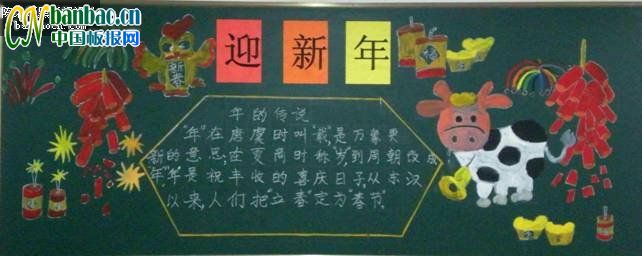 CN banbac.cn
中国板报网
迎新年
新春
年的传说
"年"在唐虞时叫"载",是万象更
新的意思;在夏商时称"岁"到周朝改成
年,"年"是祝丰收的喜庆日子,从东汉
以来,人们把"立春"定为"春节"